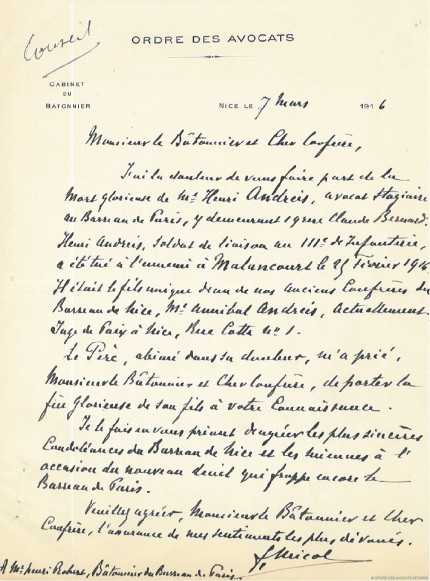 Conseil
ORDRE DES AVOCATS
CABINET
DU
BATONNIER
NICE LE 7 Mars 1916
Monsieur le Bâtonnier et Cher Confrère,
J'ai la douleur de vous faire part de la
Mort glorieuse de Me Henri Andréis, avocat Stagiaire
au Barreau de Paris, y demeurant 19 rue Claude Bernard.
Henri Andréis, Soldat de liaison au 111e d'Infanterie,
a été tué à l'ennemi à Malancourt le 25 Février 1916.
Il était le fils unique d'un de nos anciens Confrères du
Barreau de Nice, Me Annibal Andréis, actuellement
Juge de Paix à Nice, Rue Cotta no 1.
Le Père, abîmé dans sa douleur, m'a prié,
Monsieur le Bâtonnier et Cher Confrère, de porter la
fin Glorieuse de son fils à votre Connaissance.
Je le fais en vous priant d'agréer les plus sincères
Condoléances du Barreau de Nice et les miennes à l'
occasion du nouveau deuil qui frappe encore le
Barreau de Paris.
Veuillez agréer, Monsieur le Bâtonnier et Cher
Confrère, l'assurance de mes sentiments les plus dévoués.
A Me Henri Robert, Bâtonnier du Barreau de Paris.
© ORDRE DES AVOCATS DE PARIS